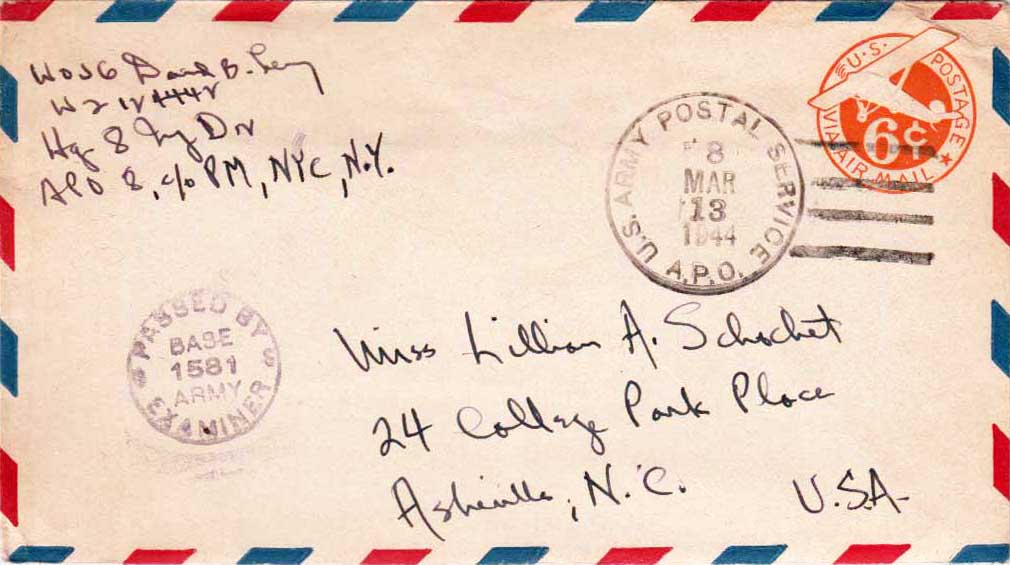 WOJG David B. Levy
Hq 8 Inf Div
APO 8, c/o PM, NYC, N.Y.
U.S. POSTAGE
6¢
VIA AIR MAIL
U.S. ARMY POSTAL SERVICE
8
MAR
13
1944
A.P.O.
PASSED BY
BASE
1581
ARMY
EXAMINER
Miss Lillian A. Schochet
24 College Park Place
Asheville, N.C.
U.S.A.